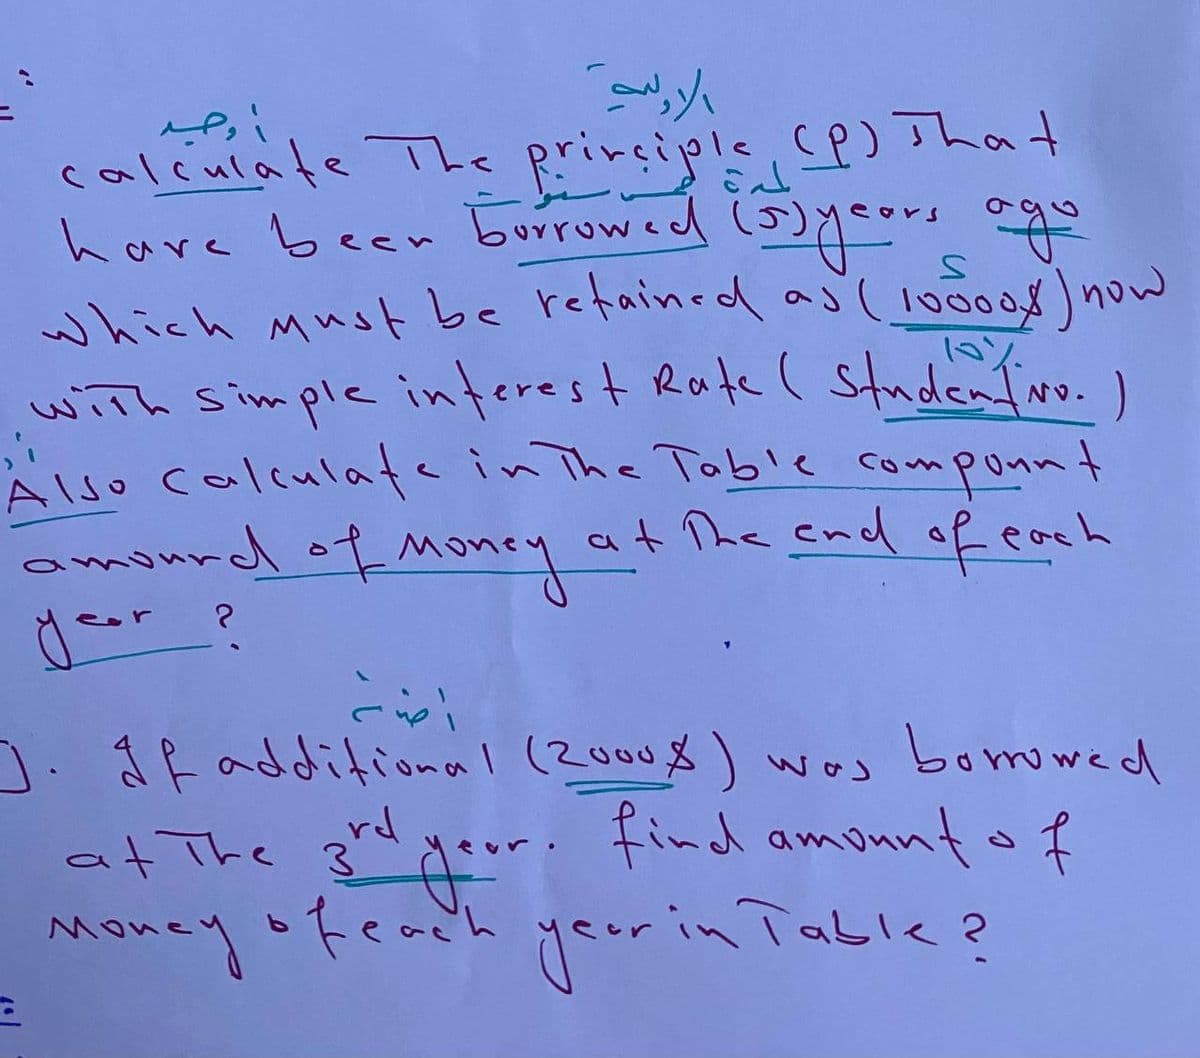 أوجد
calculate The principle (P) That
لمدة
have been borrowed (5) years ago
S
which must be retained as (10000$) now
10%
with simple interest Rate (Student No.)
Also calculate in The Table compount
amound of Money at The end of each
year ?
If additional (2000$) was borrowed
at The 3rd year. find amount of
Money of each year in Table ?